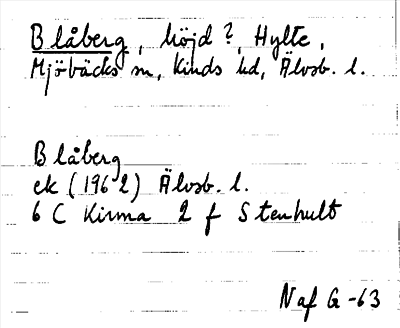 Blåberg, höjd?, Hylte,
Mjöbäcks sn, Kinds hd, Älvsb. l.
Blåberg
ek (1962) Älvsb. l.
6 C Kinna 2 f Stenhult
Naf G-63